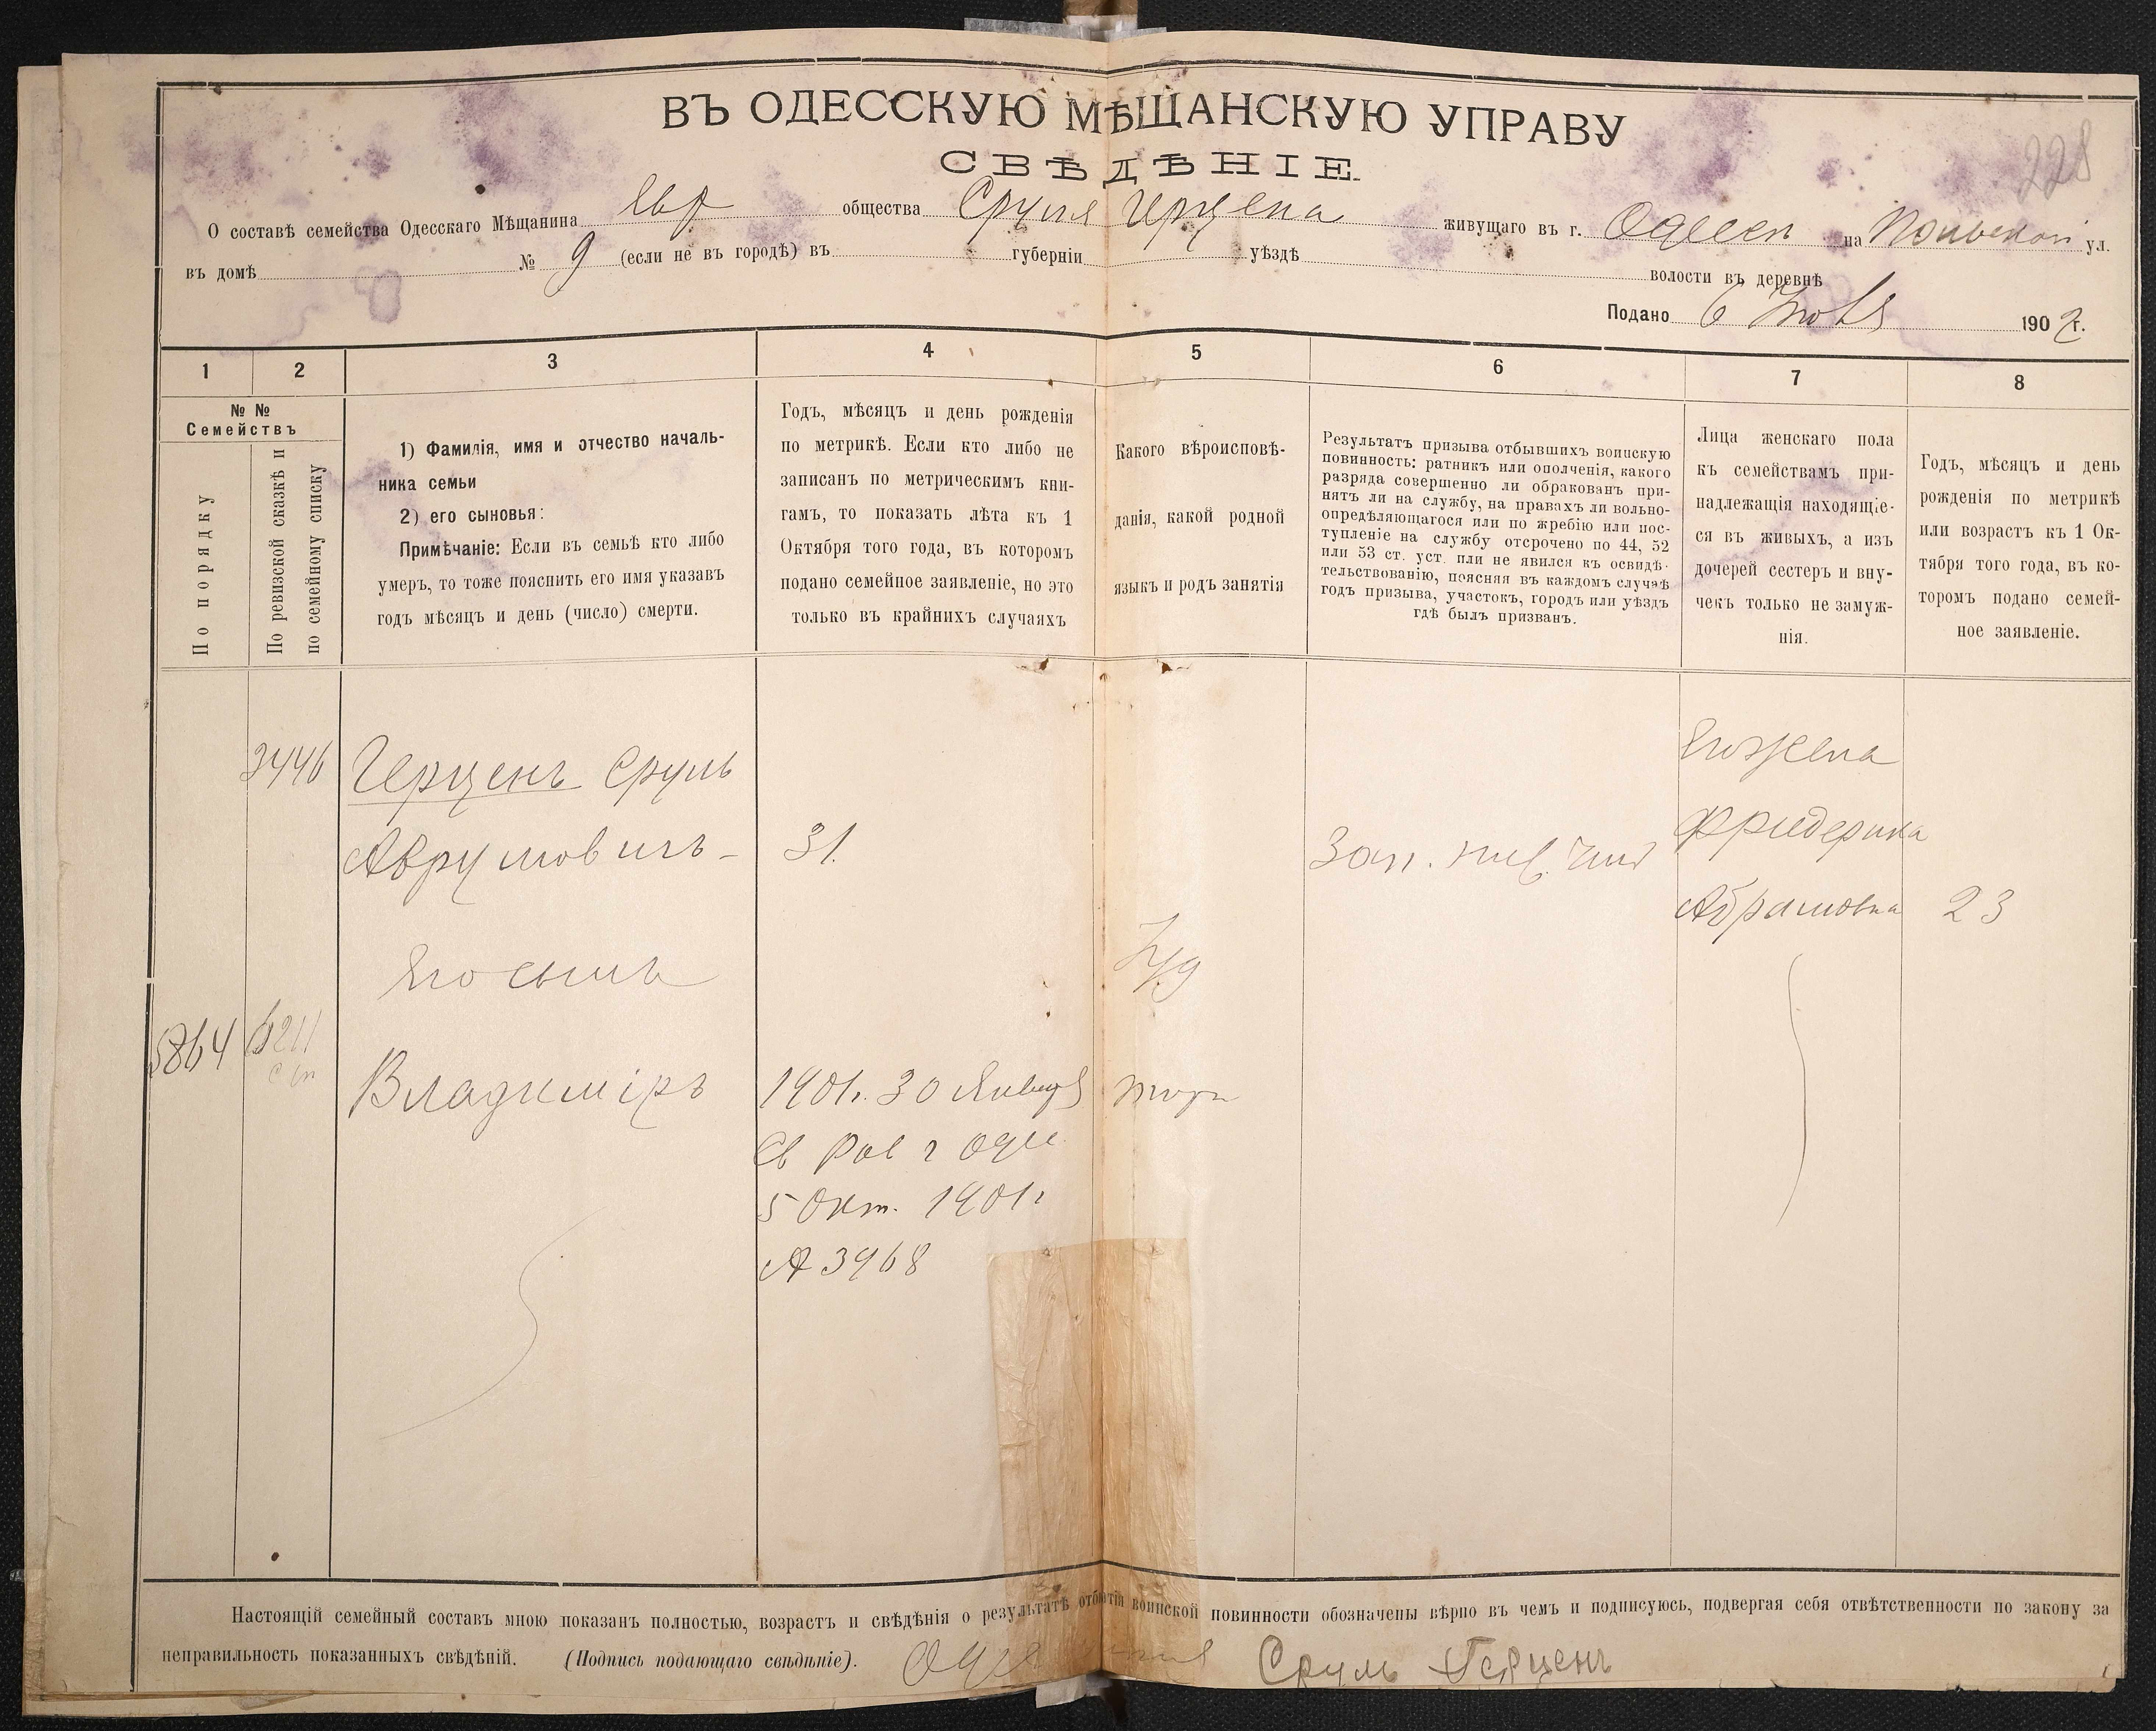 228
ВЪ ОДЕССКУЮ МѢЩАНСКУЮ УПРАВУ
СВѢДѢНІЕ
О составѣ семейства Одесскаго Мѣщанина Евр общества Сруля Герцена живущаго въ г. Одессѣ на Польской ул.
въ домѣ № 9 (если не въ городѣ) въ губерніи уѣздѣ волости въ деревнѣ
Подано 6 Іюля 1902 г.
1 2 3 4 5 6 7 8
№ №
Семействъ
По порядку
По ревизской сказкѣ и
по семейному списку
1) Фамилія, имя и отчество началь-
ника семьи
2) его сыновья:
Примѣчаніе: Если въ семьѣ кто либо
умеръ, то тоже пояснить его имя указавъ
годъ мѣсяцъ и день (число) смерти.
Годъ, мѣсяцъ и день рожденія
по метрикѣ. Если кто либо не
записанъ по метрическимъ кни-
гамъ, то показать лѣта къ 1
Октября того года, въ которомъ
подано семейное заявленіе, но это
только въ крайнихъ случаяхъ
Какого вѣроисповѣ-
данія, какой родной
языкъ и родъ занятія
Результатъ призыва отбывшихъ воинскую
повинность: ратникъ или ополченія, какого
разряда совершенно ли обракованъ при-
нятъ ли на службу, на правахъ ли вольно-
опредѣляющагося или по жребію или пос-
тупленіе на службу отсрочено по 44, 52
или 53 ст. уст. или не явился къ освидѣ-
тельствованію, поясняя въ каждомъ случаѣ
годъ призыва, участокъ, городъ или уѣздъ
гдѣ былъ призванъ.
Лица женскаго пола
къ семействамъ при-
надлежащія находящіе-
ся въ живыхъ, а изъ
дочерей сестеръ и вну-
чекъ только не замуж-
нія.
Годъ, мѣсяцъ и день
рожденія по метрикѣ
или возрастъ къ 1 Ок-
тября того года, въ ко-
торомъ подано семей-
ное заявленіе.
3446 Герценъ Сруль
Аврумовичъ - 31.
Зап. чинъ
Его жена
Фридерика
Абрамовна 23
Его сынъ
Іуд
5864 6211
сп
Владиміръ 1901 г. 30 Января торг
Св Рав г Одес
5 Окт. 1901 г
№ 3968
Настоящій семейный составъ мною показанъ полностью, возрастъ и свѣдѣнія о результатѣ отбытія воинской повинности обозначены вѣрно въ чемъ и подписуюсь, подвергая себя отвѣтственности по закону за
неправильность показанныхъ свѣдѣній. (Подпись подающаго свѣдѣніе). Сруль Герценъ